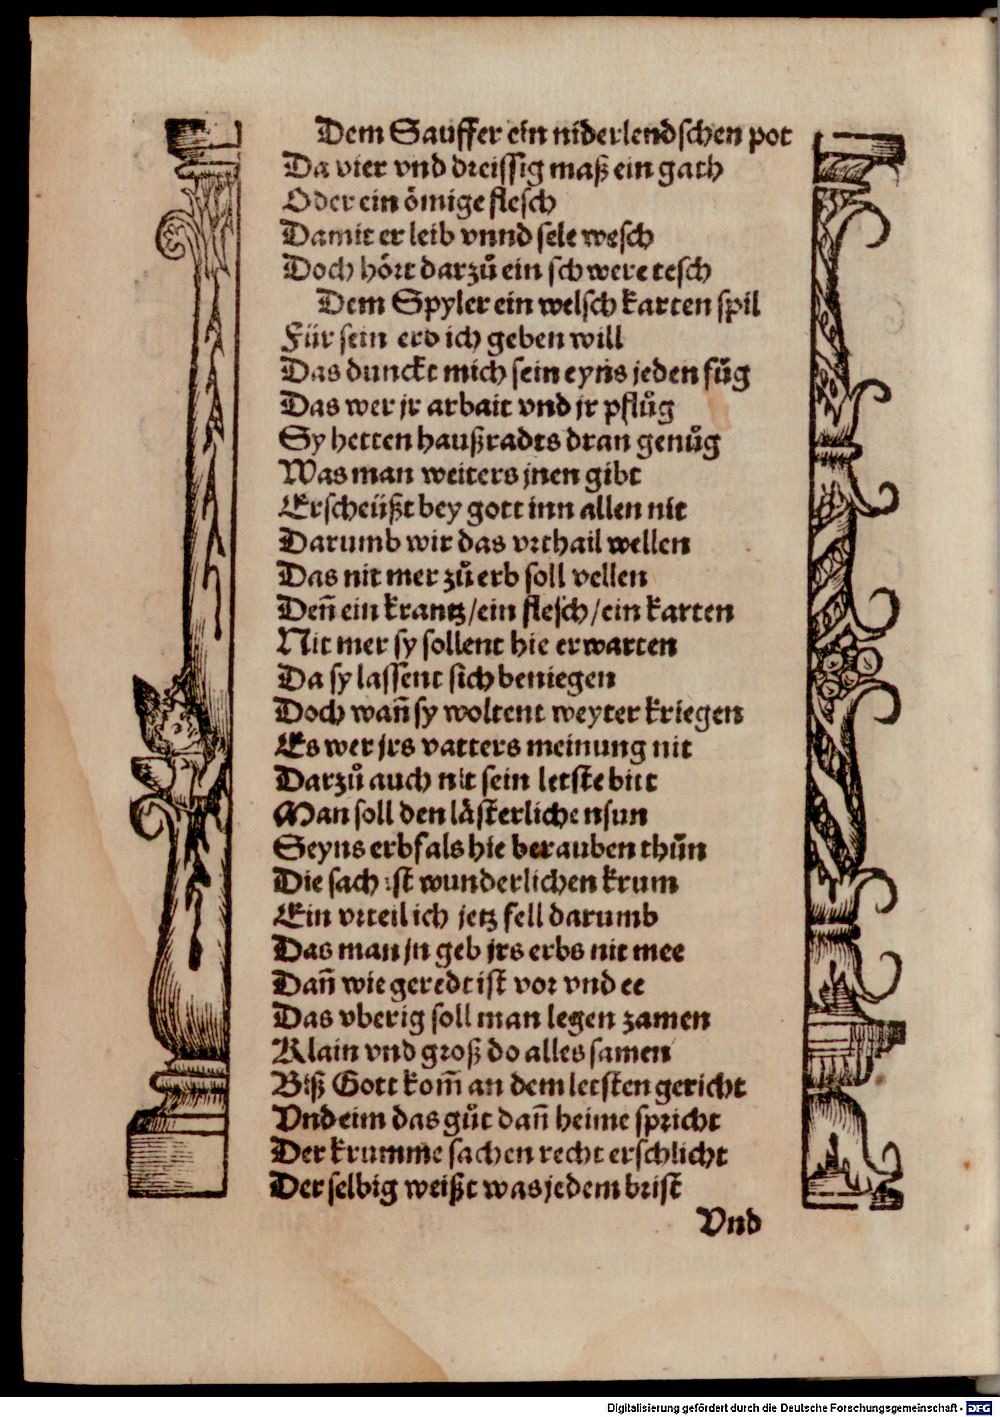 Dem Sauffer ein niderlendschen pot
Da vier vnd dreissig maß ein gath
Oder ein ömige flesch
Damit er leib vnnd sele wesch
Doch hört darzů ein schwere tesch
Dem Spyler ein welsch karten spil
Für sein erb ich geben will
Das dunckt mich sein eyns jeden fůg
Das wer jr arbait vnd jr pflůg
Sy hetten haußradts dran genůg
Was man weiters jnen gibt
Erscheüßt bey gott inn allen nit
Darumb wir das vrthail wellen
Das nit mer zů erb soll vellen
Deñ ein krantz/ein flesch/ein karten
Nit mer sy sollent hie erwarten
Da sy lassent sich beniegen
Doch wañ sy woltent weyter kriegen
Es wer jrs vatters meinung nit
Darzů auch nit sein letste bitt
Man soll den lästerliche nsun
Seyns erbfals hie berauben thůn
Die sach ist wunderlichen krum
Ein vrteil ich jetz fell darumb
Das man jn geb jrs erbs nit mee
Dañ wie geredt ist vor vnd ee
Das vberig soll man legen zamen
Klain vnd groß do alles samen
Biß Gott kom̃ an dem letsten gericht
Vnd eim das gůt dañ heime spricht
Der krumme sachen recht erschlicht
Der selbig weißt was jedem brist
Vnd
Digitalisierung gefördert durch die Deutsche Forschungsgemeinschaft - DFG